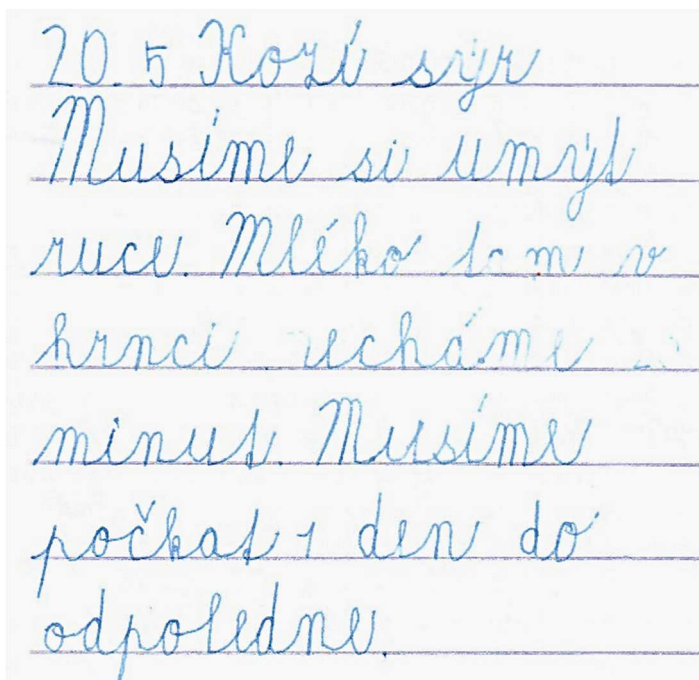 20. 5 Kozí sýr
Musíme si umýt
ruce. Mléko tam v
hrnci necháme
minut. Musíme
počkat 1 den do
odpoledne.